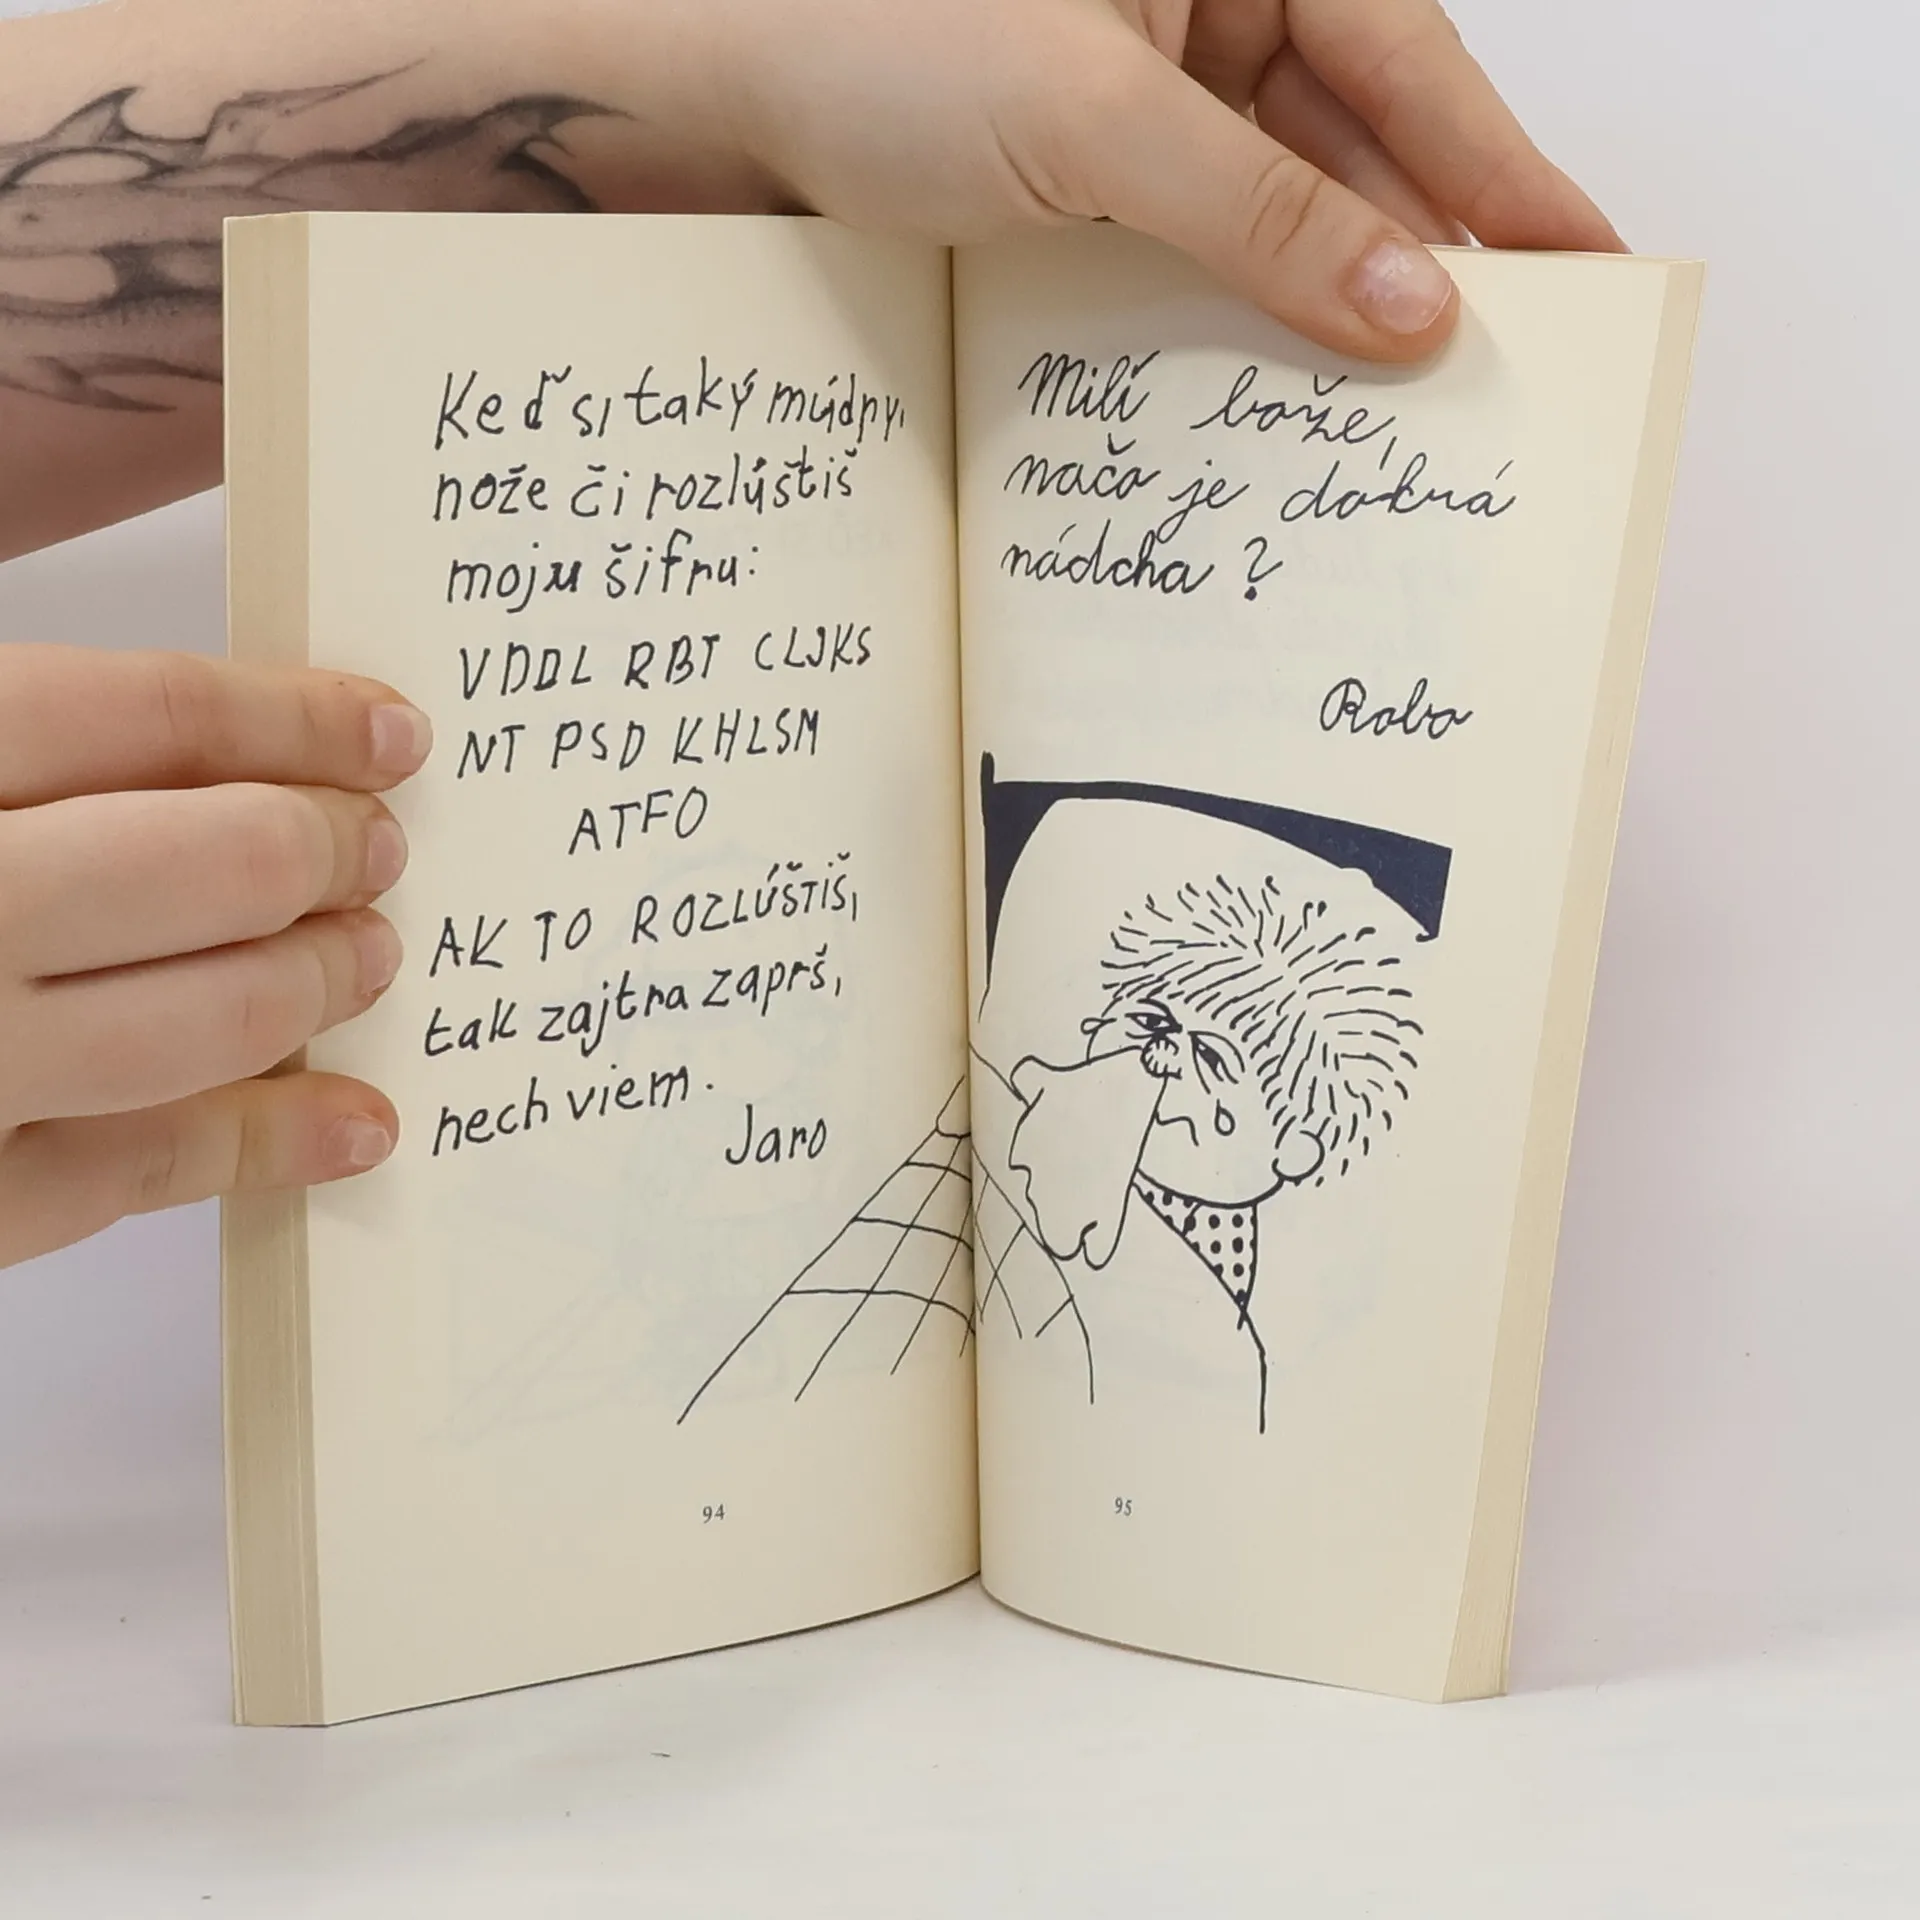 Keď si taký múdry,
nože či rozlúštiš
moju šifru:
VDDL RBT CLJKS
NT PSD KHLSM
ATFO
AK TO ROZLÚŠTIŠ,
tak zajtra zaprš,
nech viem.
Jaro
94
Milí bože,
načo je dobrá
nádcha?
Robo
95